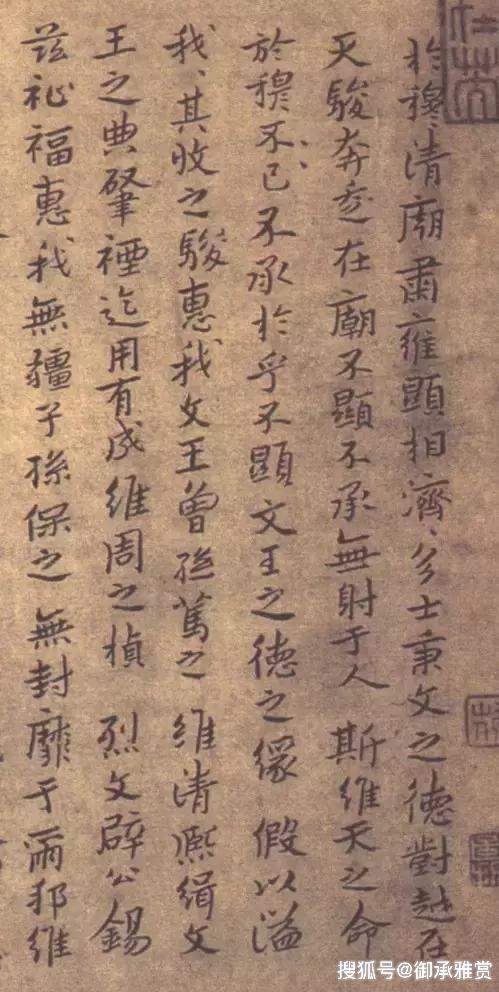 於穆、清廟肅、維顯相濟、多士秉文之德對越在
天駿奔走在廟不顯不承無射于人 斯維天之命
於穆不已不承於乎不顯文王之德之緣 假以溢
我、其收之駿惠我文王曾孫篤之 維清熙緝文
王之典肇禋迄用有成維周之楨 烈文辟公錫
茲祉福惠我無疆子孫保之無封靡于爾邦維
搜狐号@御承雅赏